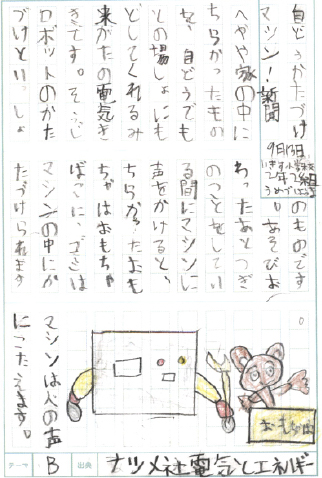 自どうかたづけ
マシン！新聞
へやや家の中に
ちらかったもの
を、自どうでも
との場しょにも
どしてくれるみ
来がたの電気き
きです。そうじ
ロボットのかた
づけといっしょ
のものです
。あそびお
わったあとつぎ
のことをしてい
る間にマシンに
声をかけると、
ちらかったおも
ちゃはおもちゃ
ばこに、ゴミは
マシンの中にか
たづけられます
。
マシンは人の声
にこたえます。
9日
組
おもちゃ
テーマ B 出典 ナツメ社電気とエネルギー